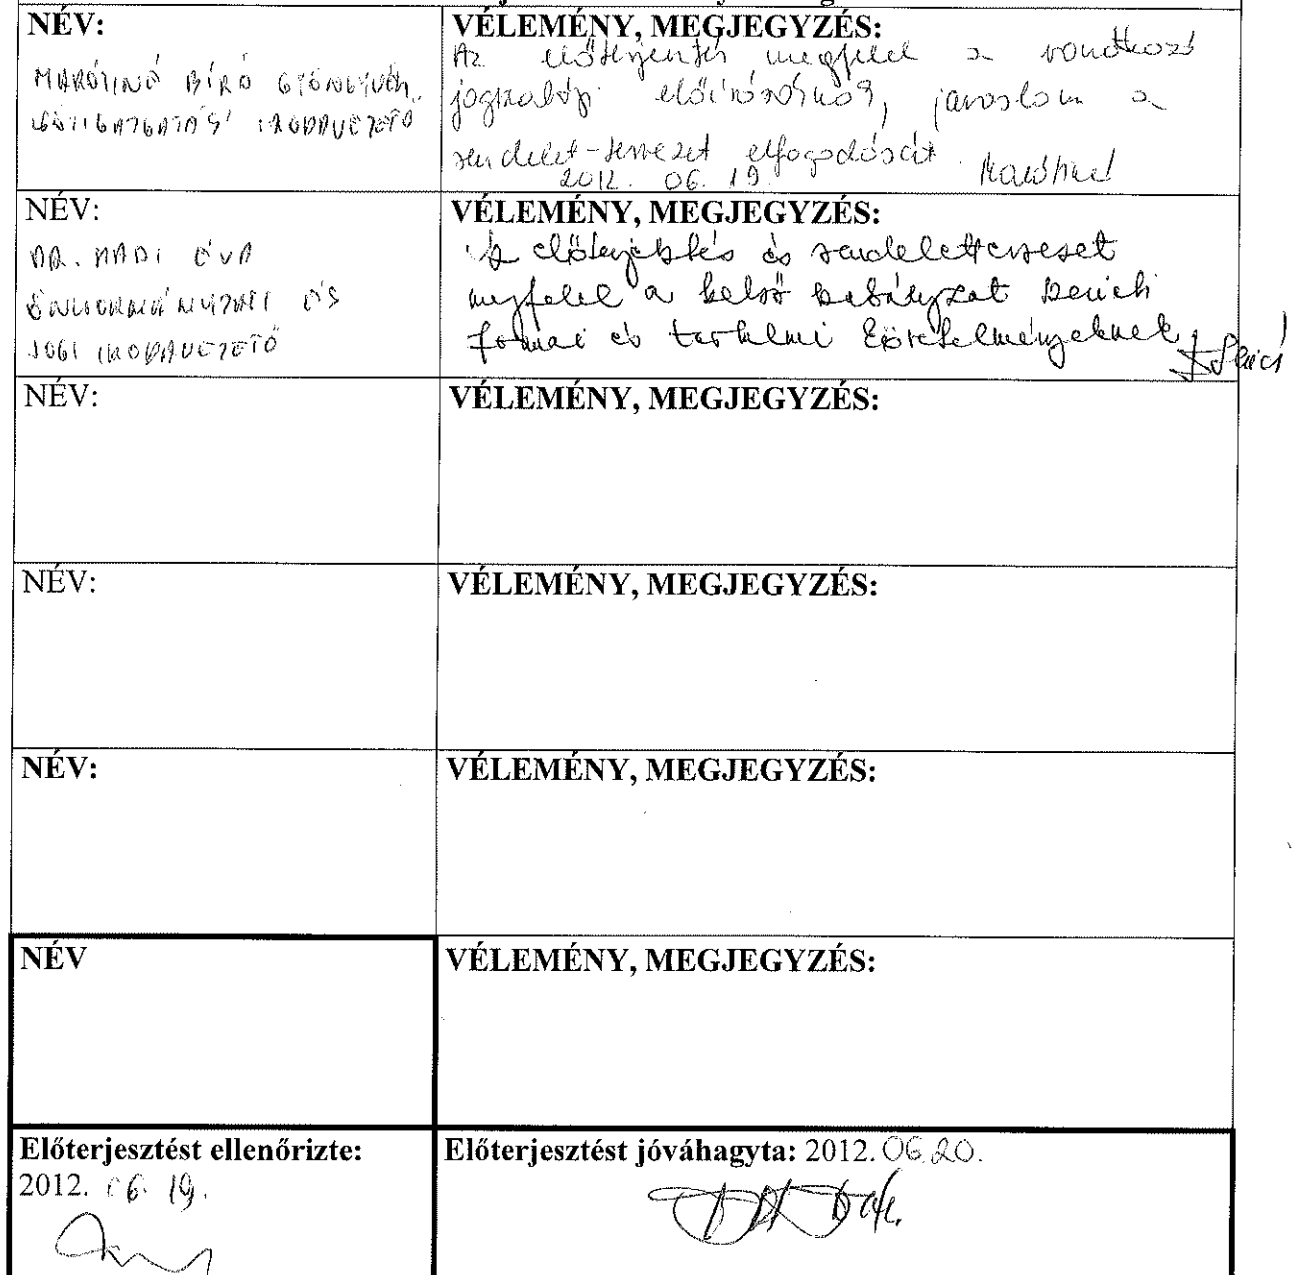 NÉV:
MARÓTINÉ BÍRÓ GYÖNGYVÉR
KÖZIGAZGATÁSI IRODAVEZETŐ
VÉLEMÉNY, MEGJEGYZÉS:
Az előterjesztés megfelel a vonatkozó
jogszabályi előírásoknak, javaslom a
rendelet-tervezet elfogadását.
2012. 06. 19. Marótiné
NÉV:
DR. MÁDI ÉVA
ÖNKORMÁNYZATI ÉS
JOGI IRODAVEZETŐ
VÉLEMÉNY, MEGJEGYZÉS:
Az előterjesztés és rendelettervezet
megfelel a belső szabályzat szerinti
formai és tartalmi követelményeknek
NÉV:
VÉLEMÉNY, MEGJEGYZÉS:
NÉV:
VÉLEMÉNY, MEGJEGYZÉS:
NÉV:
VÉLEMÉNY, MEGJEGYZÉS:
NÉV
VÉLEMÉNY, MEGJEGYZÉS:
Előterjesztést ellenőrizte:
2012. 06. 19.
Előterjesztést jóváhagyta: 2012. 06.20.